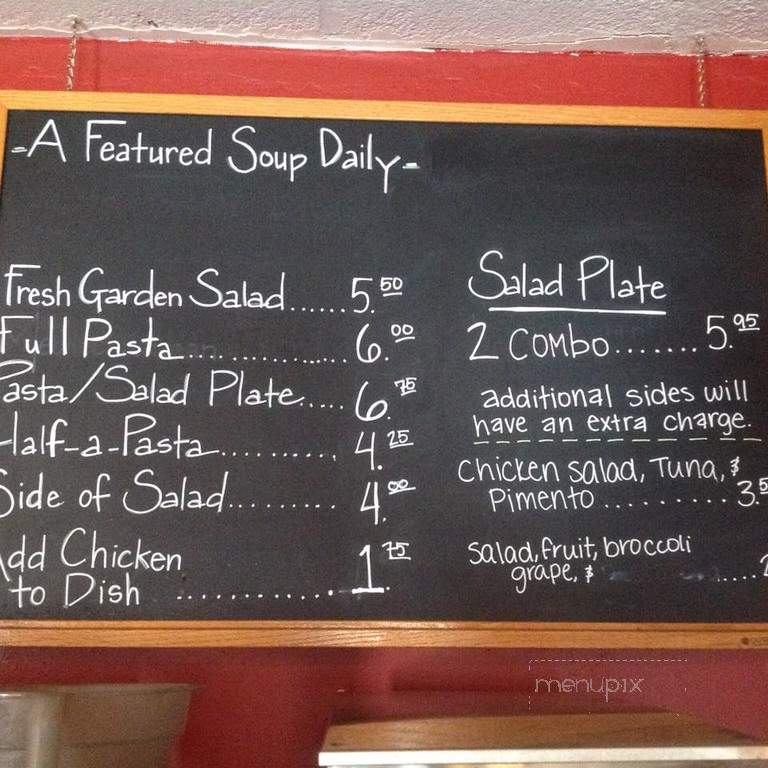 -A Featured Soup Daily-
Fresh Garden Salad......5.50
Full Pasta..................6.00
Pasta/Salad Plate.....6.75
Half-a-Pasta..........4.25
Side of Salad.........4.00
Add Chicken
to Dish ............1.75
Salad Plate
2 Combo.......5.95
additional sides will
have an extra charge.
Chicken salad, Tuna, &
Pimento..........3.5
salad, fruit, broccoli
grape, & .....
menupix